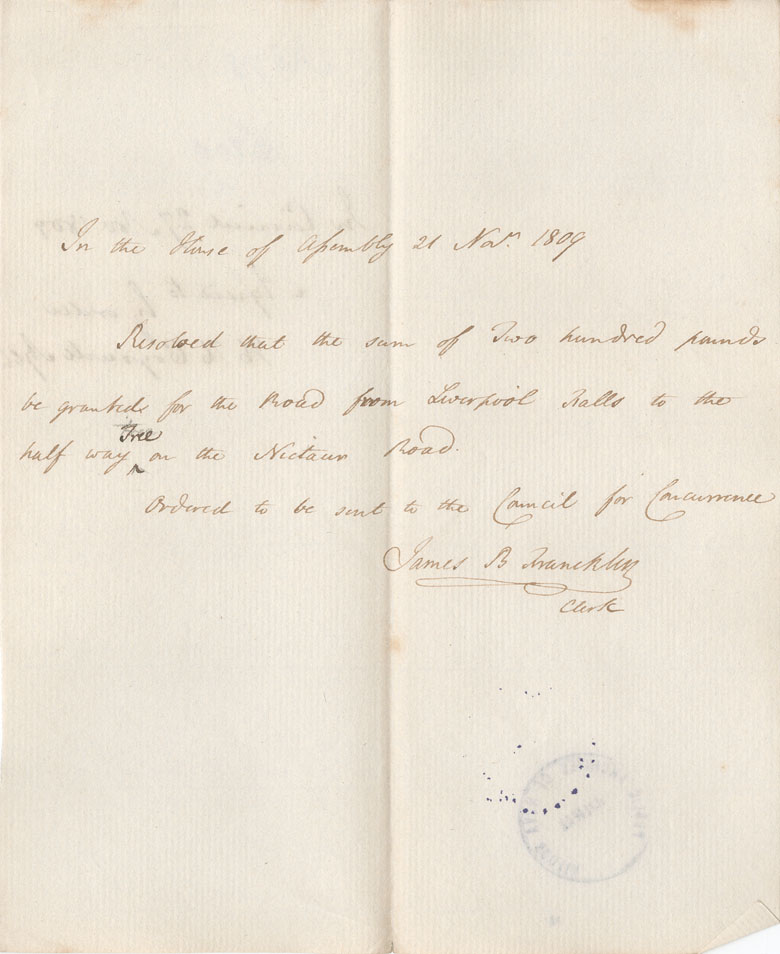 In the House of Assembly 21 Novr. 1809
Resolved that the sum of Two hundred pounds
be granted for the Road from Liverpool Falls to the
Tree
half way ^ on the Nictaux Road.
Ordered to be sent to the Council for Concurrence
James B Franckling
Clerk